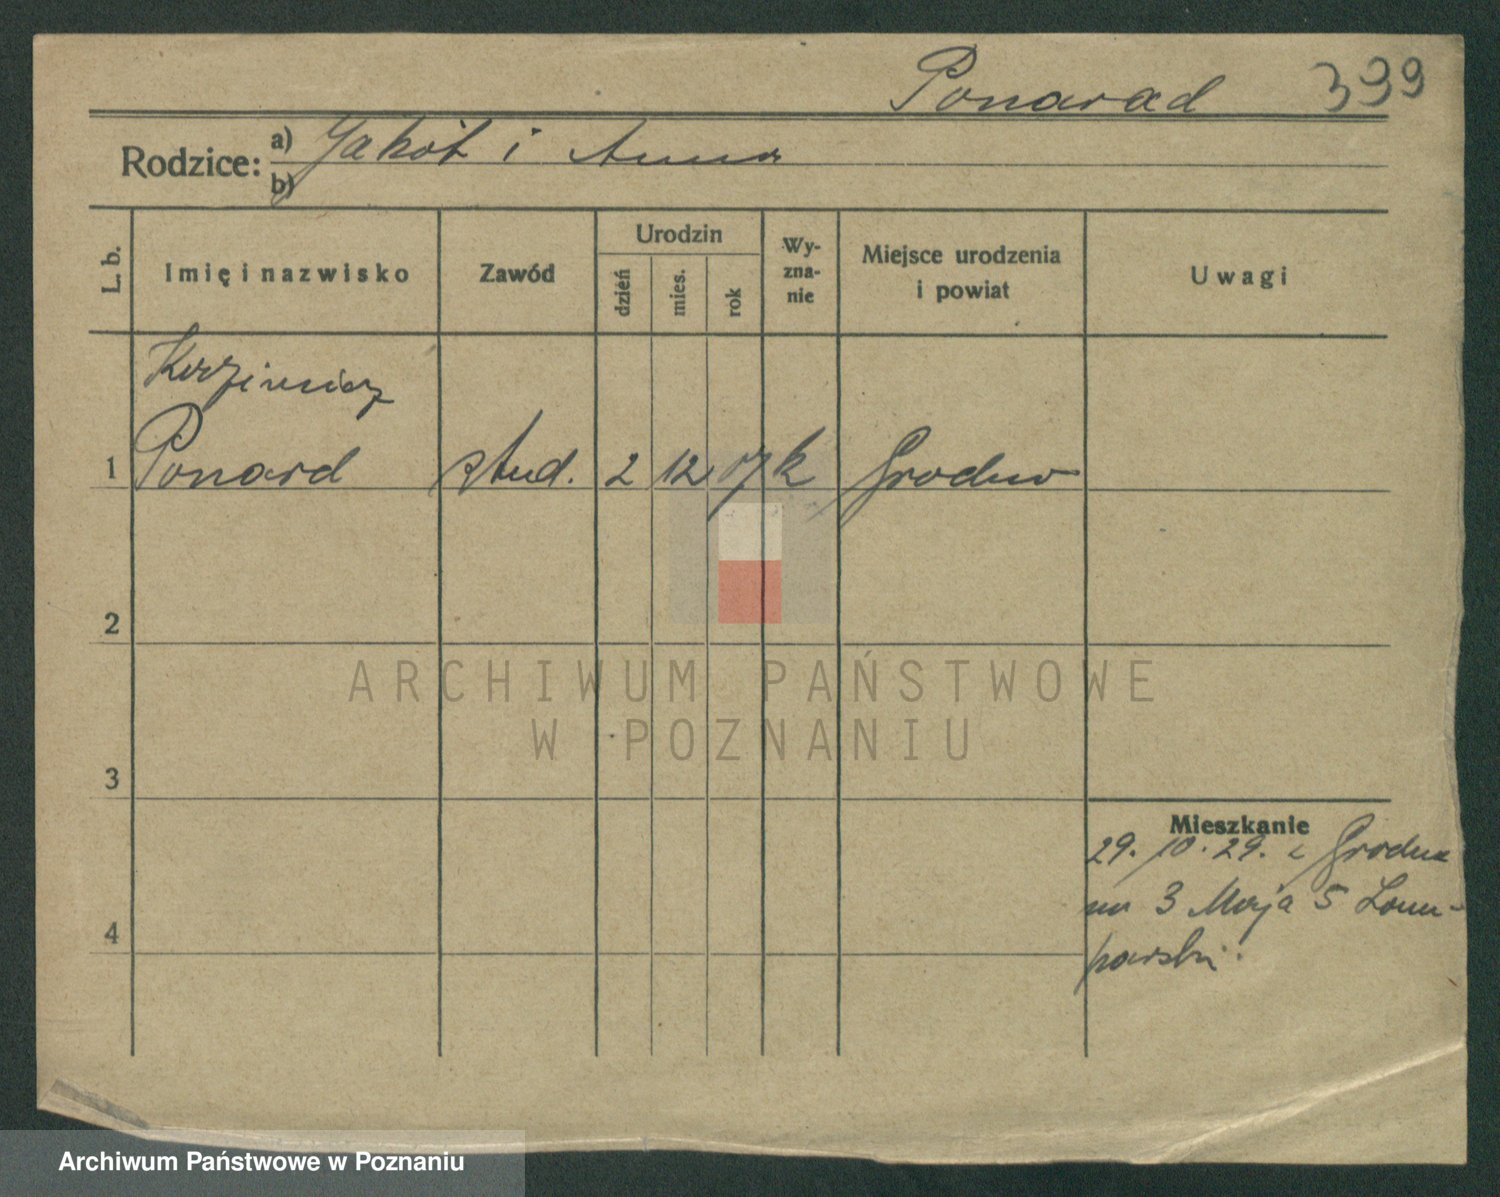 Ponarad 399
Rodzice: a) Jakób i Anna
b)
L. b.
Imię i nazwisko
Zawód
Urodzin
dzień
mies.
rok
Wy-
zna-
nie
Miejsce urodzenia
i powiat
Uwagi
Kazimierz
1 Ponard stud. 2 12 07 k Grodno
2
ARCHIWUM PAŃSTWOWE
W POZNANIU
3
Mieszkanie
29. 10. 29. z Grodna
na 3 Maja 5
4
Archiwum Państwowe w Poznaniu